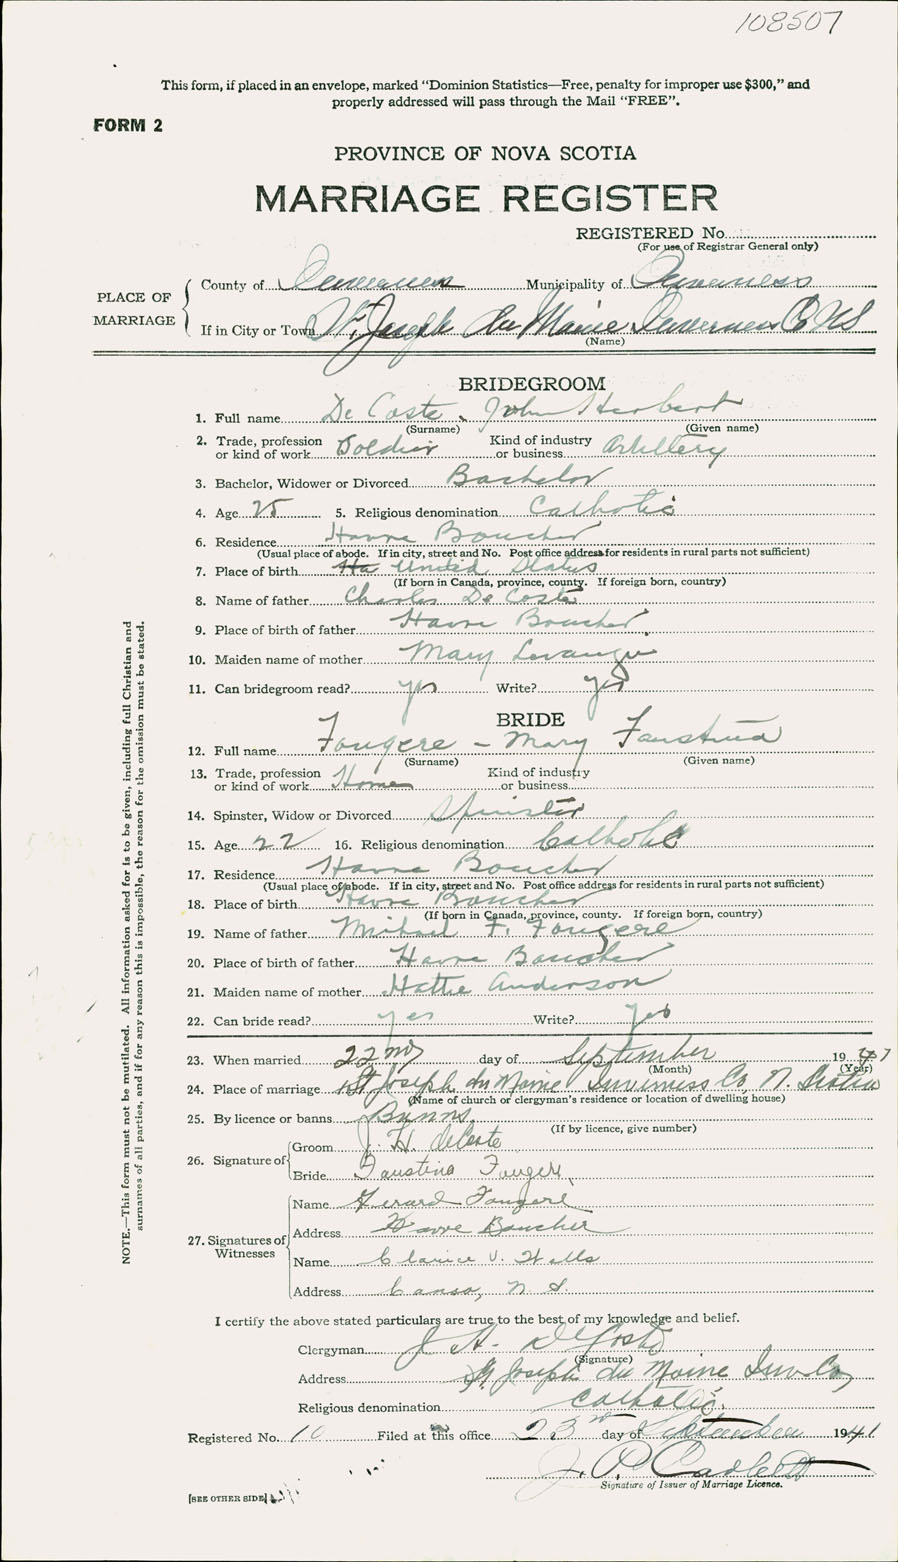 108507
This form, if placed in an envelope, marked "Dominion Statistics—Free, penalty for improper use $300," and
properly addressed will pass through the Mail "FREE".
FORM 2
PROVINCE OF NOVA SCOTIA
MARRIAGE REGISTER
REGISTERED No.
(For use of Registrar General only)
PLACE OF MARRIAGE
County of Inverness Municipality of Inverness
If in City or Town St. Joseph du Moine Inverness Co NS
(Name)
BRIDEGROOM
1. Full name De Coste, John Herbert
(Surname) (Given name)
2. Trade, profession or kind of work Soldier Kind of industry or business Artillery
3. Bachelor, Widower or Divorced Bachelor
4. Age 25 5. Religious denomination Catholic
6. Residence Havre Boucher
(Usual place of abode. If in city, street and No. Post office address for residents in rural parts not sufficient)
7. Place of birth Ha United States
(If born in Canada, province, county. If foreign born, country)
8. Name of father Charles De Coste
9. Place of birth of father Havre Boucher
10. Maiden name of mother Mary Levangie
11. Can bridegroom read? yes Write? yes
BRIDE
12. Full name Fougere - Mary Faustina
(Surname) (Given name)
13. Trade, profession or kind of work Home Kind of industry or business
14. Spinster, Widow or Divorced Spinster
15. Age 22 16. Religious denomination Catholic
17. Residence Havre Boucher
(Usual place of abode. If in city, street and No. Post office address for residents in rural parts not sufficient)
18. Place of birth Havre Boucher
(If born in Canada, province, county. If foreign born, country)
19. Name of father Michael F. Fougere
20. Place of birth of father Havre Boucher
21. Maiden name of mother Hattie Anderson
22. Can bride read? yes Write? yes
23. When married 22nd day of September 19
(Month) (Year)
24. Place of marriage St Joseph du Moine Inverness Co, N. Scotia
(Name of church or clergyman's residence or location of dwelling house)
25. By licence or banns Banns.
(If by licence, give number)
26. Signature of
Groom J. H. deCoste
Bride Faustina Fougere
27. Signatures of Witnesses
Name Gerard Fougere
Address Havre Boucher
Name Clarice V. Wells
Address Canso, N. S.
I certify the above stated particulars are true to the best of my knowledge and belief.
Clergyman J. A. DeCoste
(Signature)
Address St Joseph du Moine Inv. Co,
Religious denomination Catholic.
Registered No. 10 Filed at this office 23rd day of September 1941
J. P.
Signature of Issuer of Marriage Licence.
[SEE OTHER SIDE]
NOTE.—This form must not be mutilated. All information asked for is to be given, including full Christian and
surnames of all parties, and if for any reason this is impossible, the reason for the omission must be stated.